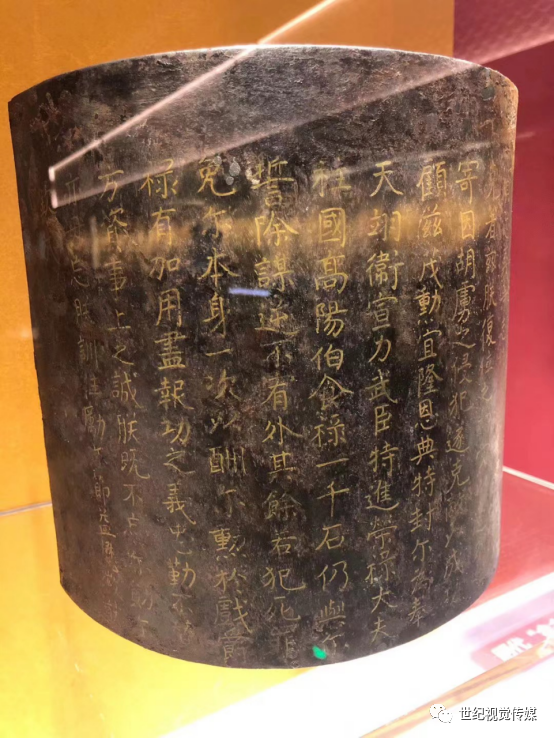 者朕復
寄因胡虜之侵犯遂克
顧茲茂勳宜隆恩典特封尔為奉
天翊衛宣力武臣特進榮祿大夫
柱國高陽伯食祿一千石仍與尔
誓除謀逆不宥外其餘若犯死罪
免尔本身一次以酬尔勳於戲爵
祿有加用盡報功之義忠勤不
方資事上之誠朕既不忘
忘朕訓往勵 節益
世纪视觉传媒